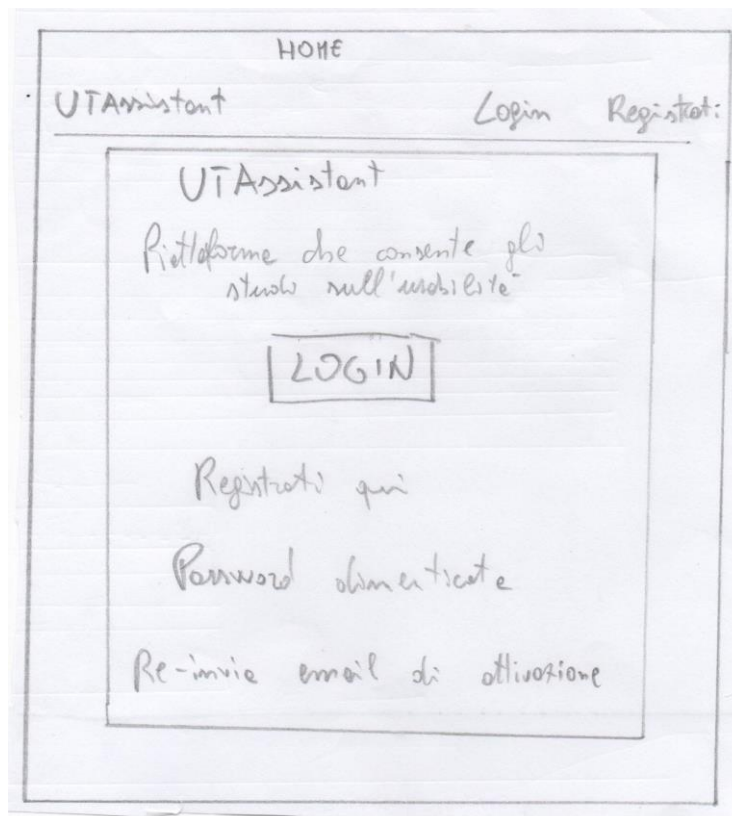 HOME
UTAssistant Login Registrati
UTAssistant
Piattaforma che consente gli
studi sull'usabilità
LOGIN
Registrati qui
Password dimenticata
Re-invia email di attivazione